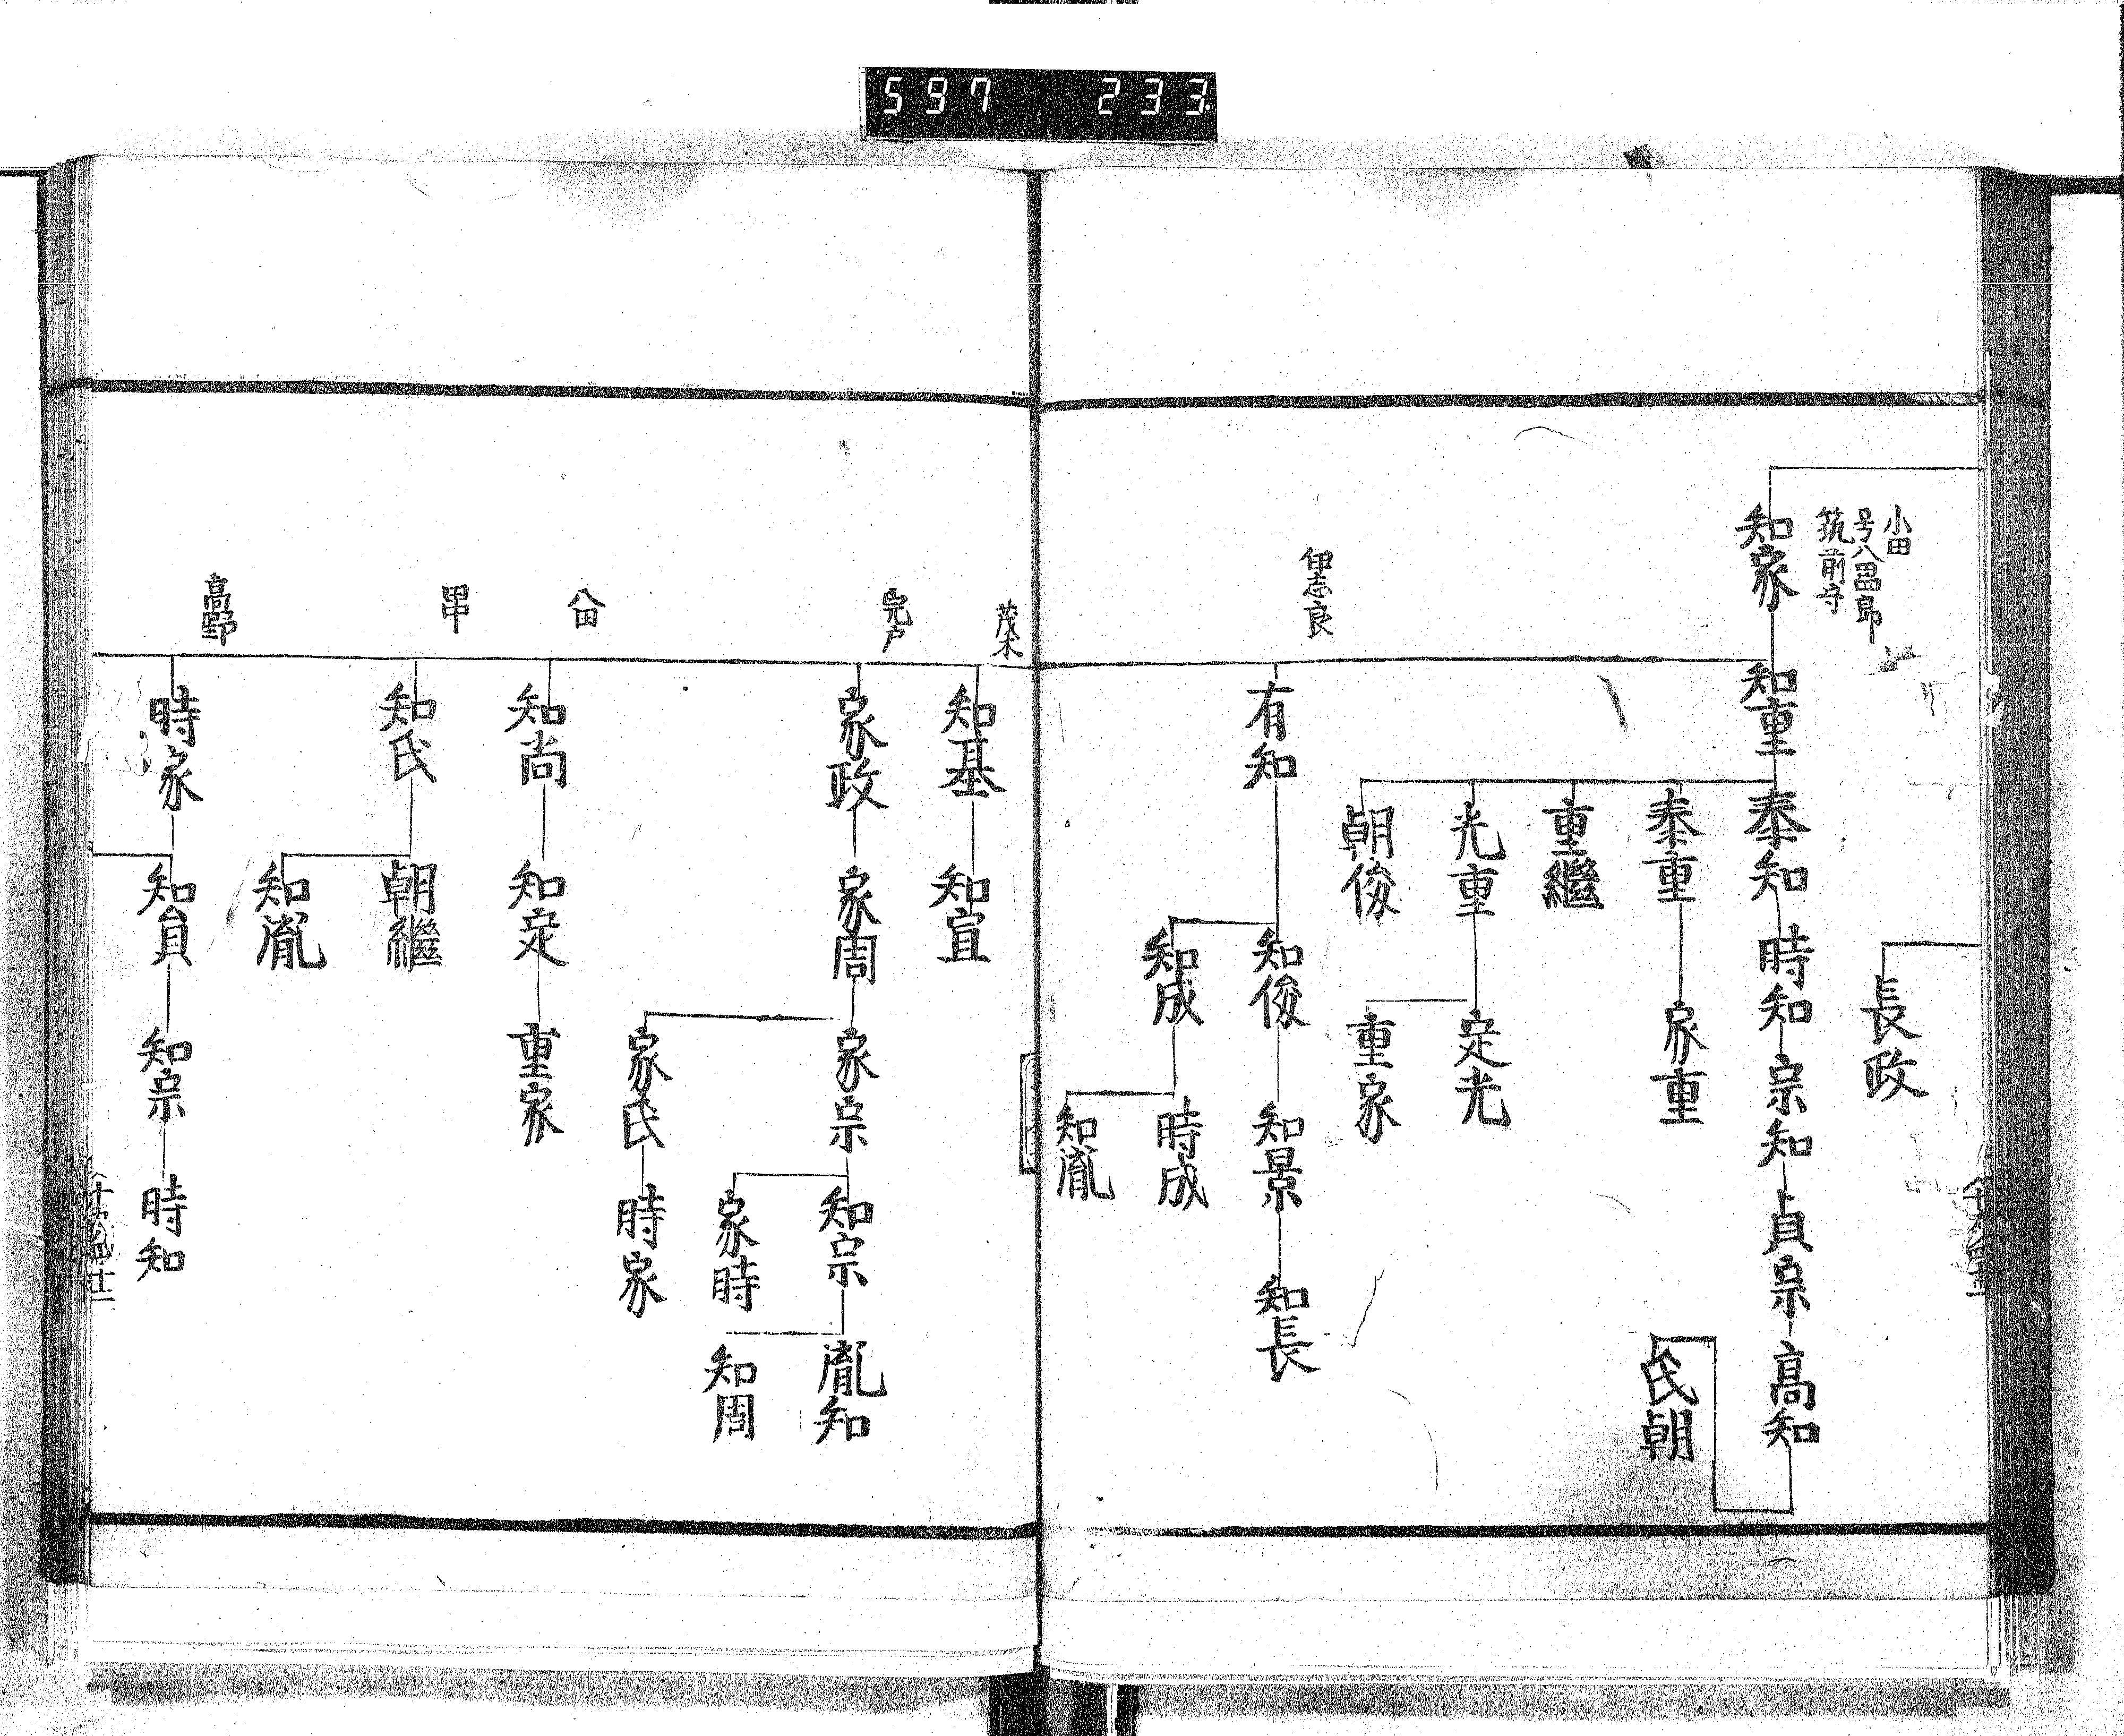 597 233
小田
号八田四郎
筑前守
知家
知重
泰知
時知
宗知
貞宗
高知
氏朝
長政
泰重
家重
重繼
光重
定光
重家
朝俊
伊志良
有知
知俊
知景
知長
知成
時成
知胤
茂木
知基
知宣
宍戸
家政
家周
家宗
知宗
胤知
知周
家時
家氏
時家
八田
知尚
知定
重家
田中
知氏
朝繼
知胤
高野
時家
知員
知宗
時知